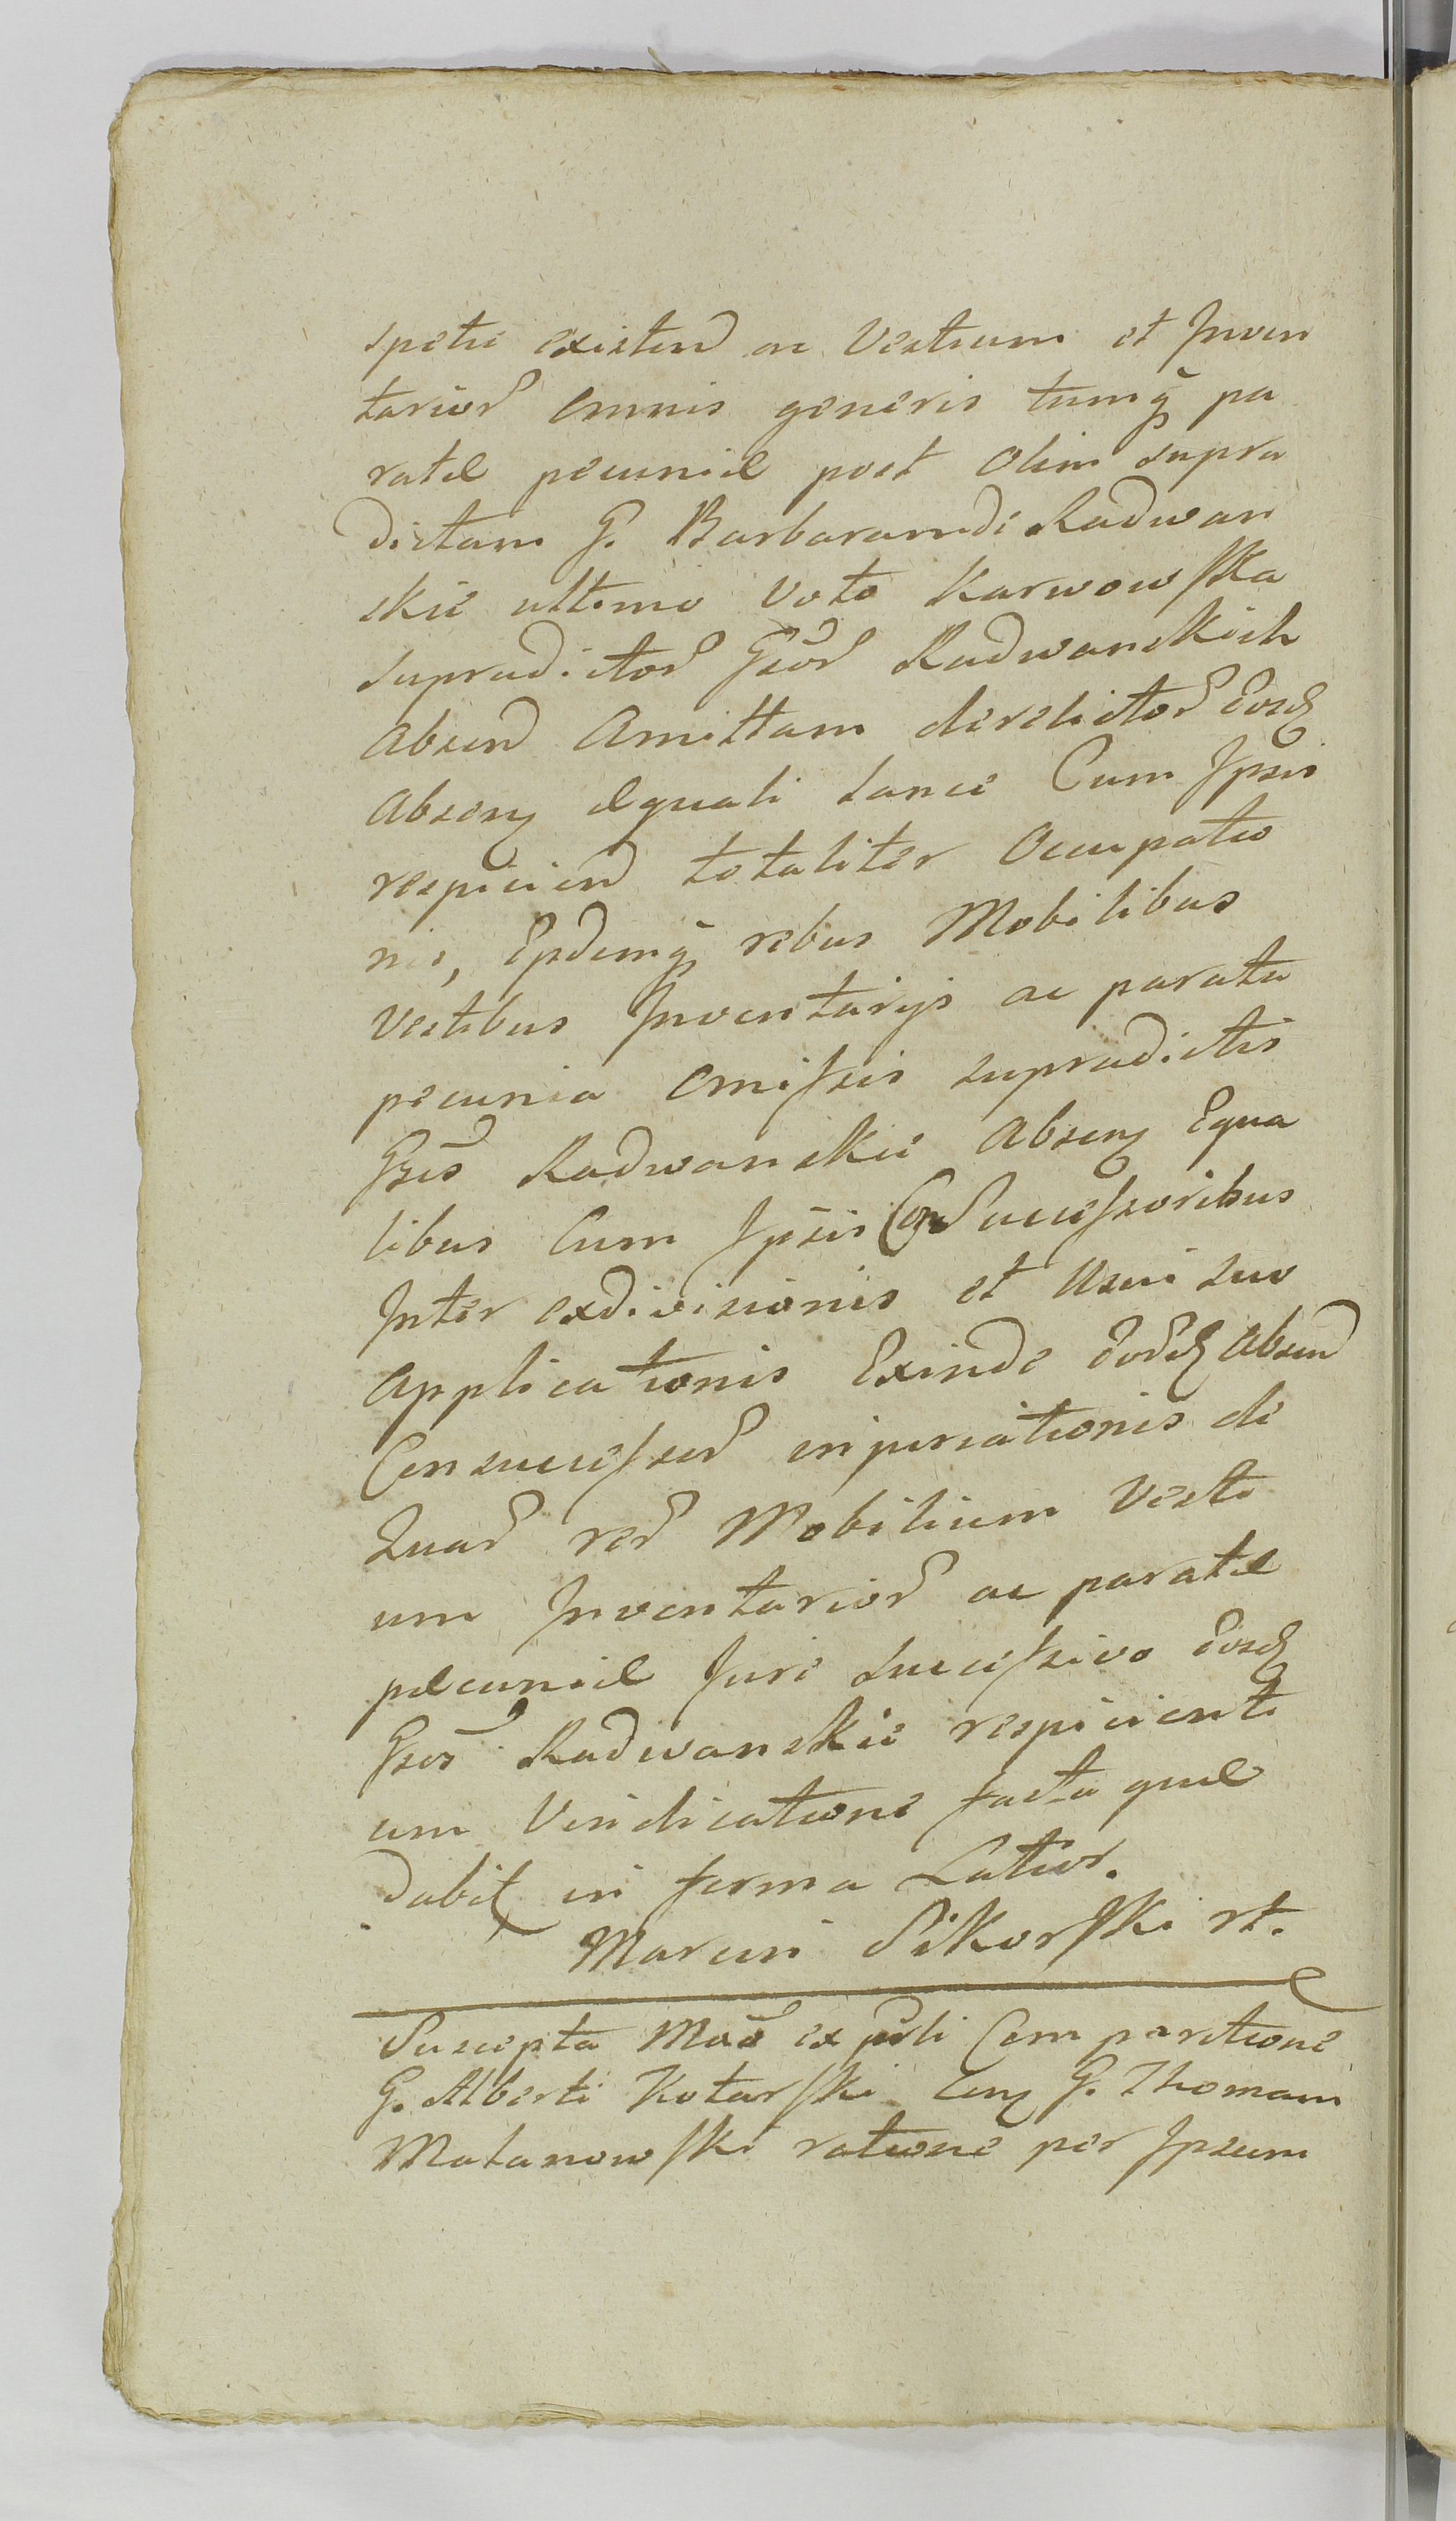 spetie existen̄ ac Vestium et Inven
tarior̄ omnis generis tumq̃ pa
ratæ pecuniæ post olim supra
dictam G. Barbaram de Radwan
skie ultimo voto Karwowska
supradictor̄ Gsor̄ Radwanskich
absen̄ Amittam derelictor̄ Eosd̄
absen̄ æquali lance Cum Ipsis
respicien̄ totaliter Occupatio
nis, Ejsdemq̃ rebus Mobilibus
Vestibus Inventarijs ac parata
pecunia omissis supradictis
Gsis Radwanskie absen̄ Equa
libus Cum Ipsis ConSuccessoribus
Inter exdivisionis et Usui suo
applicationis Exinde Eord̄ absen̄
Consuccessor̄ injuriationis de
Quar̄ rer̄ Mobilium Vesti
um Inventarior̄ ac paratæ
pæcuniæ Jure Successivo Eosd̄
Gsos Radwanskie respicienti
um Vindicatione facta quæ
dabit̄ in forma Latior.
Marcin Sikorski rt.
Suscepta Mōō ex pārli Comparitione
G. Alberti Kotarski Con̄ G. Thomam
Matanowski ratione per Ipsum